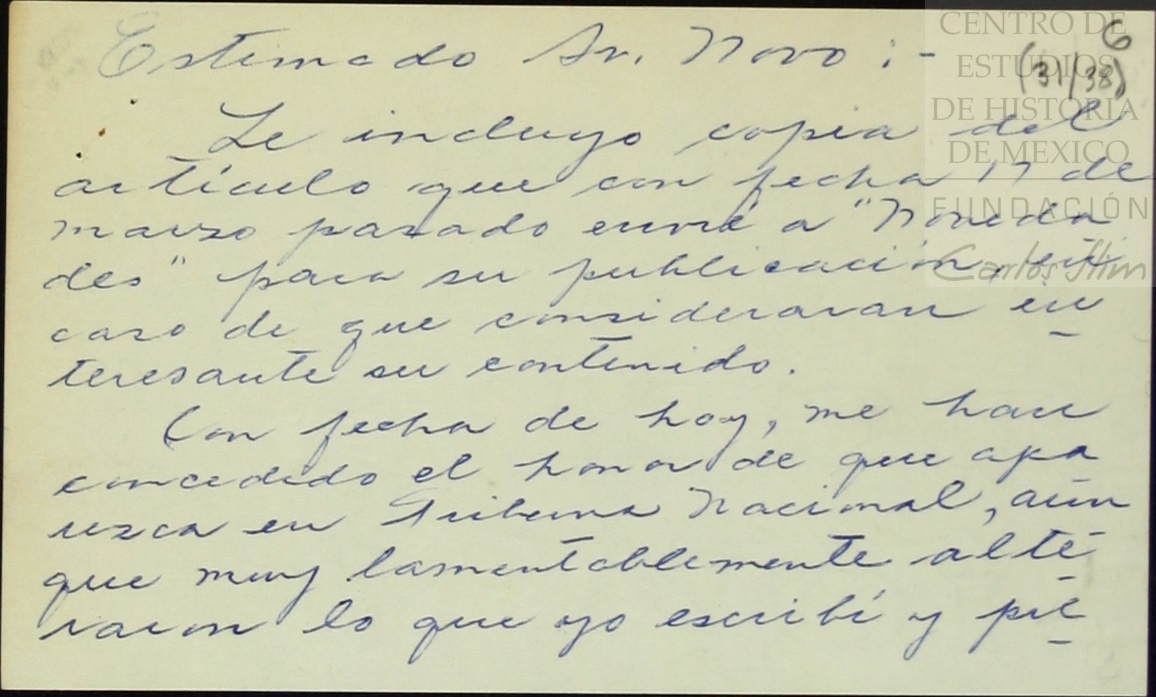 CENTRO DE
ESTUDIOS
DE HISTORIA
DE MEXICO
FUNDACIÓN
Carlos Slim
6
(31/38)
Estimado Sr. Novo :-
Le incluyo copia del
artículo que con fecha 17 de
marzo pasado envié a "Noveda
des" para su publicación, en
caso de que consideraran in
teresante su contenido.
Con fecha de hoy, me han
concedido el honor de que apa
rezca en Tribuna Nacional, aún
que muy lamentablemente alte
raron lo que yo escribí y pu